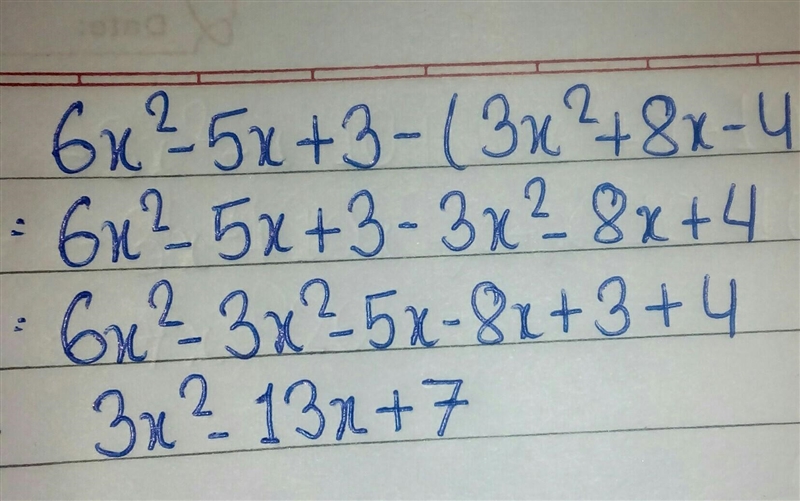 Date:
6x² - 5x + 3 - (3x² + 8x - 4
= 6x² - 5x + 3 - 3x² - 8x + 4
= 6x² - 3x² - 5x - 8x + 3 + 4
3x² - 13x + 7